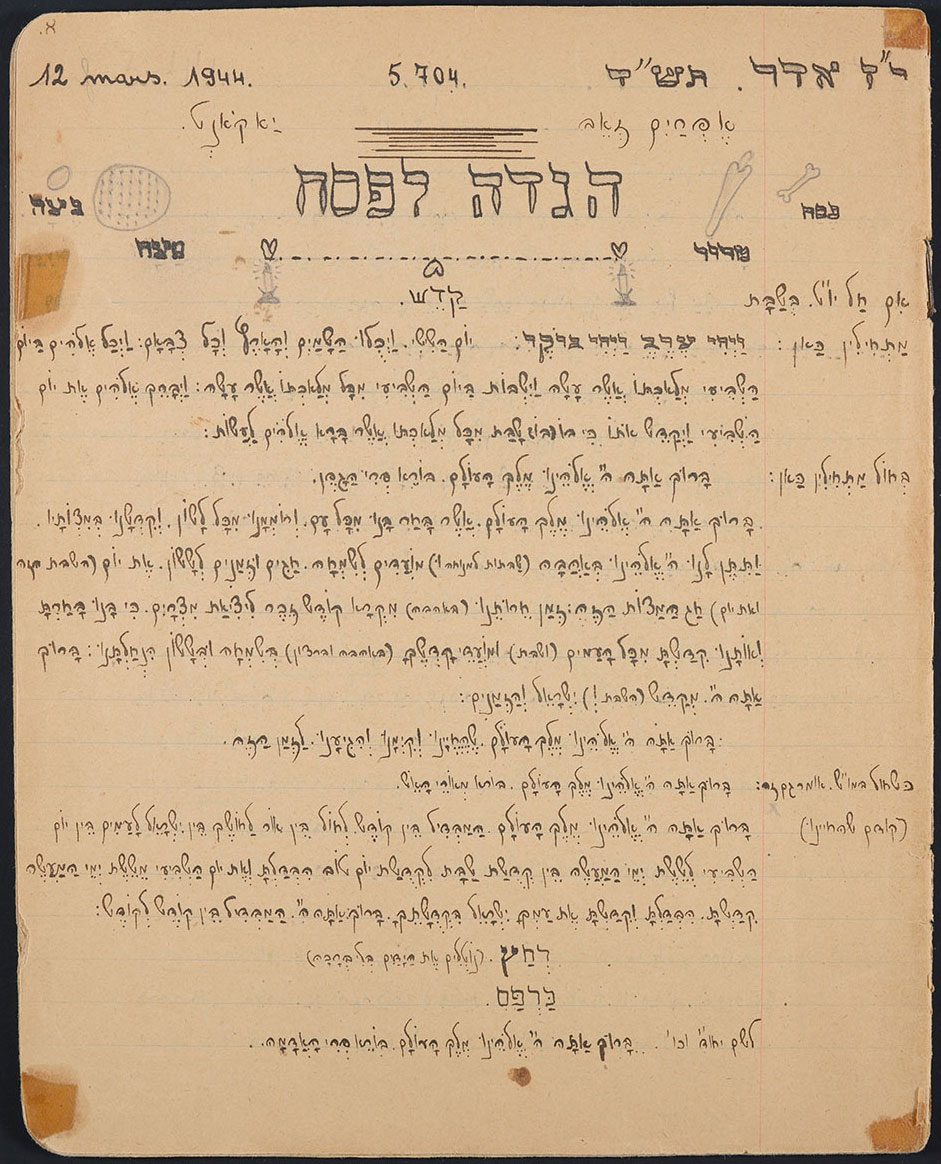 א.
י"ז אדר. תש"ד 5.704. 12 mars. 1944.
אפרים זאב יאקאנט.
הגדה לפסח
פסח
ביצה
מרור
מצה
קדש.
אם חל יו"ט. בשבת
מתחילין כאן: ויהי ערב ויהי בוקר: יום הששי. ויכלו השמים והארץ וכל צבאם: ויכל אלהים ביום
השביעי מלאכתו אשר עשה וישבות ביום השביעי מכל מלאכתו אשר עשה: ויברך אלהים את יום
השביעי ויקדש אותו כי בו שבת מכל מלאכתו אשר ברא אלהים לעשות:
בחול מתחילין כאן: ברוך אתה ה' אלהינו מלך העולם. בורא פרי הגפן.
ברוך אתה ה' אלהינו מלך העולם. אשר בחר בנו מכל עם. ורוממנו מכל לשון. וקדשנו במצותיו.
ותתן לנו ה' אלהינו באהבה (שבתות למנוחה ו) מועדים לשמחה. חגים וזמנים לששון. את יום (השבת הזה
ואת יום) חג המצות הזה: זמן חרותנו (באהבה) מקרא קודש זכר ליציאת מצרים. כי בנו בחרת
ואותנו קדשת מכל העמים (ושבת) ומועדי קדשך (באהבה וברצון) בשמחה ובששון הנחלתנו: ברוך
אתה ה'. מקדש (השבת ו) ישראל והזמנים:
ברוך אתה ה' אלהינו מלך העולם. שהחיינו וקימנו והגיענו. לזמן הזה.
כשחל במו"ש. אומר גם זה: ברוך אתה ה' אלהינו מלך העולם. בורא מאורי האש.
(קודם שהחיינו) ברוך אתה ה' אלהינו מלך העולם. המבדיל בין קודש לחול בין אור לחושך בין ישראל לעמים בין יום
השביעי לששת ימי המעשה בין קדשת שבת לקדשת יום טוב הבדלת ואת יום השביעי מששת ימי המעשה
קדשת. הבדלת וקדשת את עמך ישראל בקדשתך. ברוך אתה ה'. המבדיל בין קודש לקודש:
רחץ. (נוטלים את הידים בלי ברכה)
כרפס.
לשם יחוד וכו'. ברוך אתה ה' אלהינו מלך העולם. בורא פרי האדמה.